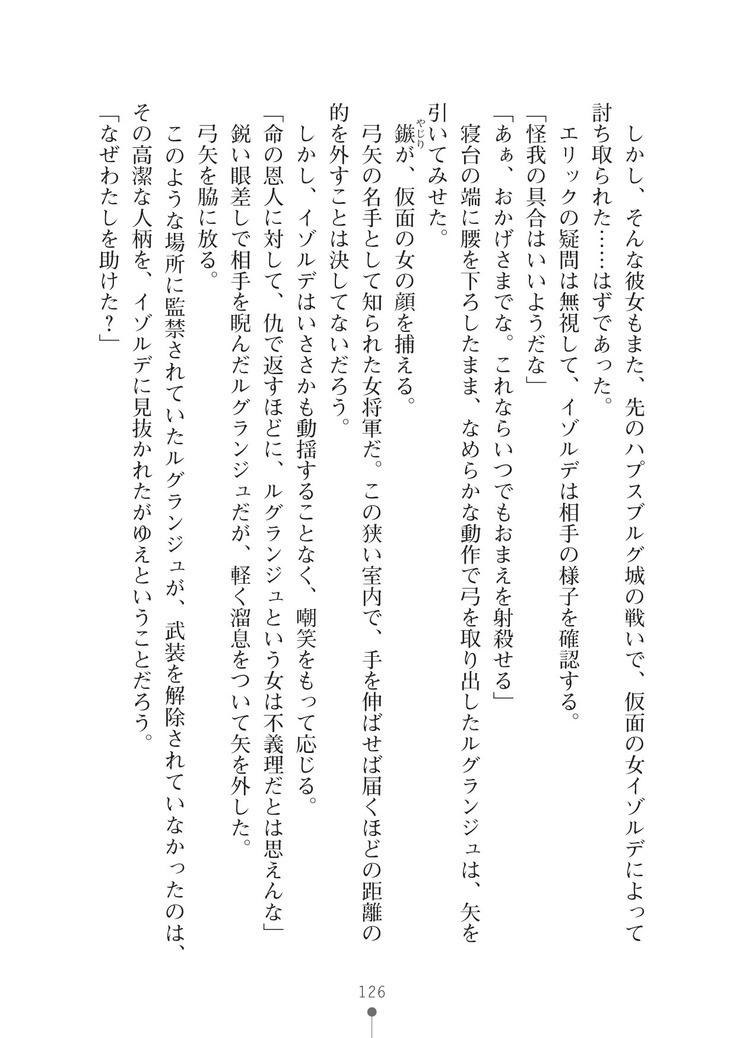 しかし、そんな彼女もまた、先のハプスブルグ城の戦いで、仮面の女イゾルデによって
討ち取られた……はずであった。
　エリックの疑問は無視して、イゾルデは相手の様子を確認する。
「怪我の具合はいいようだな」
「あぁ、おかげさまでな。これならいつでもおまえを射殺せる」
　寝台の端に腰を下ろしたまま、なめらかな動作で弓を取り出したルグランジュは、矢を
引いてみせた。
　鏃やじりが、仮面の女の顔を捕える。
　弓矢の名手として知られた女将軍だ。この狭い室内で、手を伸ばせば届くほどの距離の
的を外すことは決してないだろう。
　しかし、イゾルデはいささかも動揺することなく、嘲笑をもって応じる。
「命の恩人に対して、仇で返すほどに、ルグランジュという女は不義理だとは思えんな」
　鋭い眼差しで相手を睨んだルグランジュだが、軽く溜息をついて矢を外した。
　弓矢を脇に放る。
　このような場所に監禁されていたルグランジュが、武装を解除されていなかったのは、
その高潔な人柄を、イゾルデに見抜かれたがゆえということだろう。
「なぜわたしを助けた？」
126